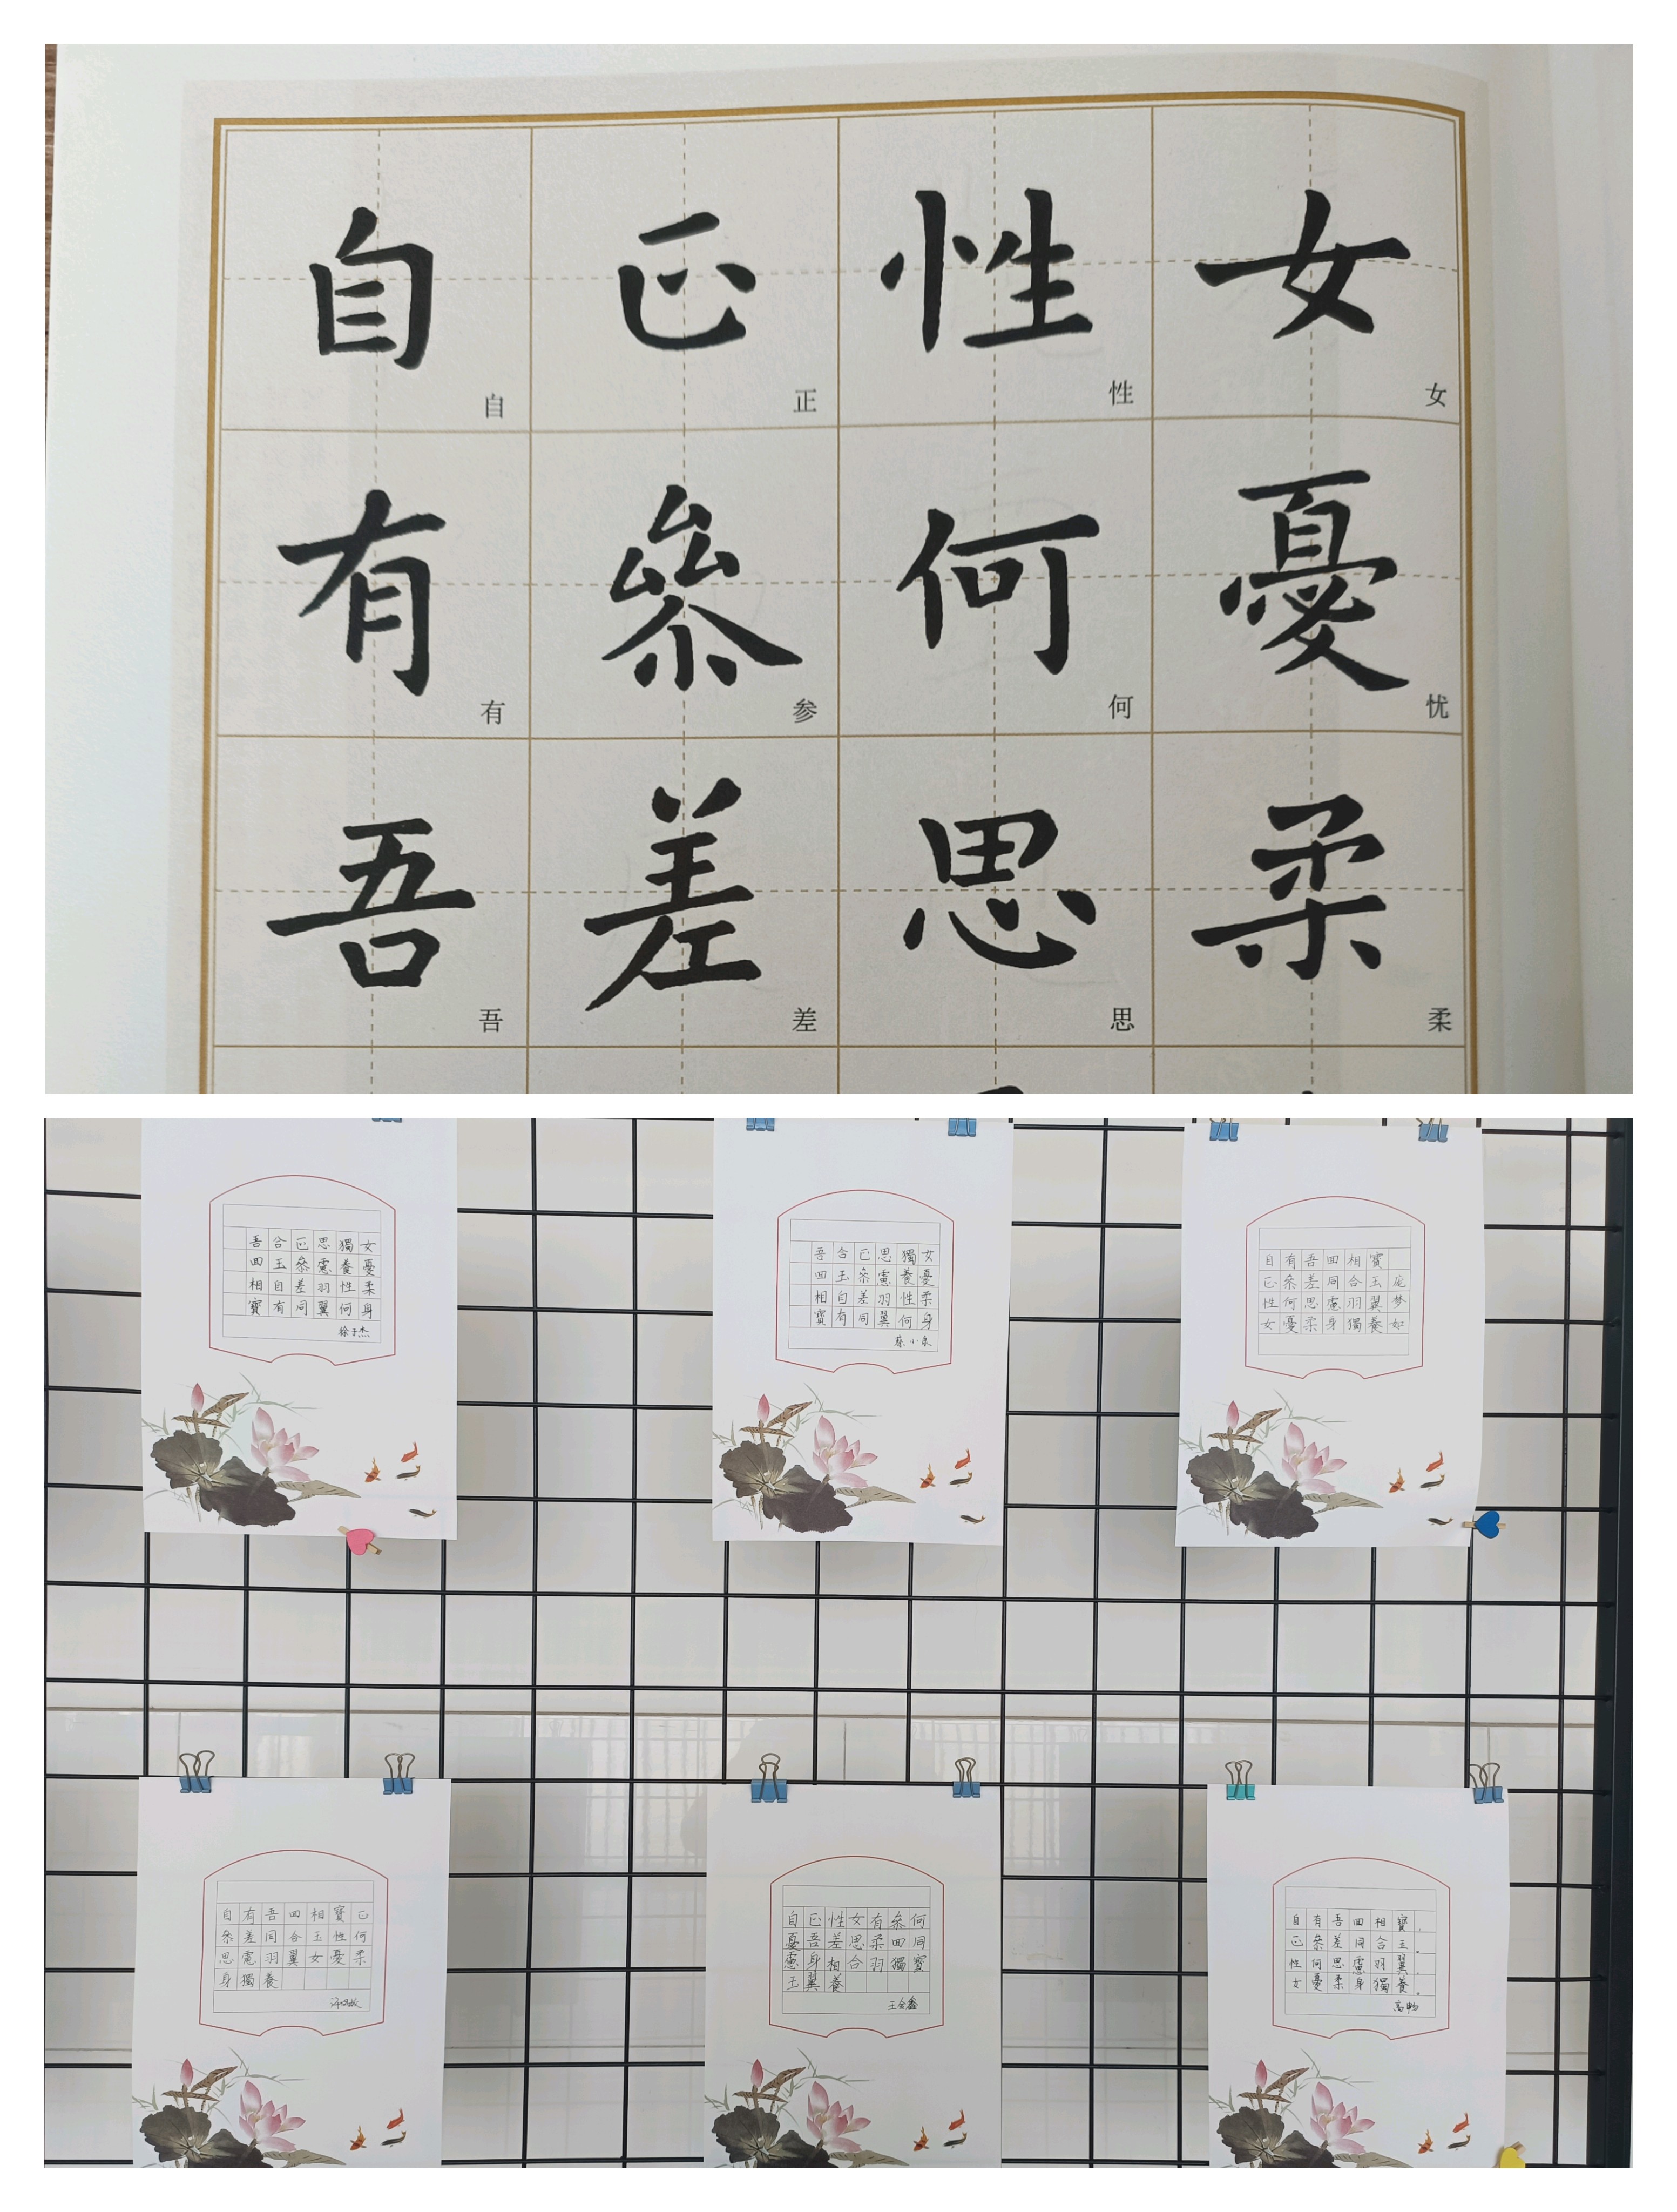 自 正 性 女
自 正 性 女
有 參 何 憂
有 参 何 忧
吾 差 思 柔
吾 差 思 柔
吾 合 正 思 獨 女
四 玉 參 慮 養 憂
相 自 差 羽 性 柔
寶 有 同 翼 何 身
徐子杰
吾 合 正 思 獨 女
四 玉 參 慮 養 憂
相 自 差 羽 性 柔
寶 有 同 翼 何 身
自 有 吾 四 相 寶
正 參 差 同 合 玉 庞
性 何 思 慮 羽 翼 梦
女 憂 柔 身 獨 養 如
自 有 吾 四 相 寶 正
參 差 同 合 玉 性 何
思 慮 羽 翼 女 憂 柔
身 獨 養
自 正 性 女 有 參 何
憂 吾 差 思 柔 四 同
慮 身 相 合 羽 獨 寶
玉 翼 養
王金鑫
自 有 吾 四 相 寶 .
正 參 差 同 合 玉 .
性 何 思 慮 羽 翼 .
女 憂 柔 身 獨 養 .
高畅